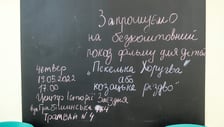 Запрошуємо
на безкоштовний
показ фільму для дітей
"Пекельна Хоругва
або
козацьке різдво"
четвер
19.05.2022
17.00
Центр Історії Заїздня
Трамваї № 4